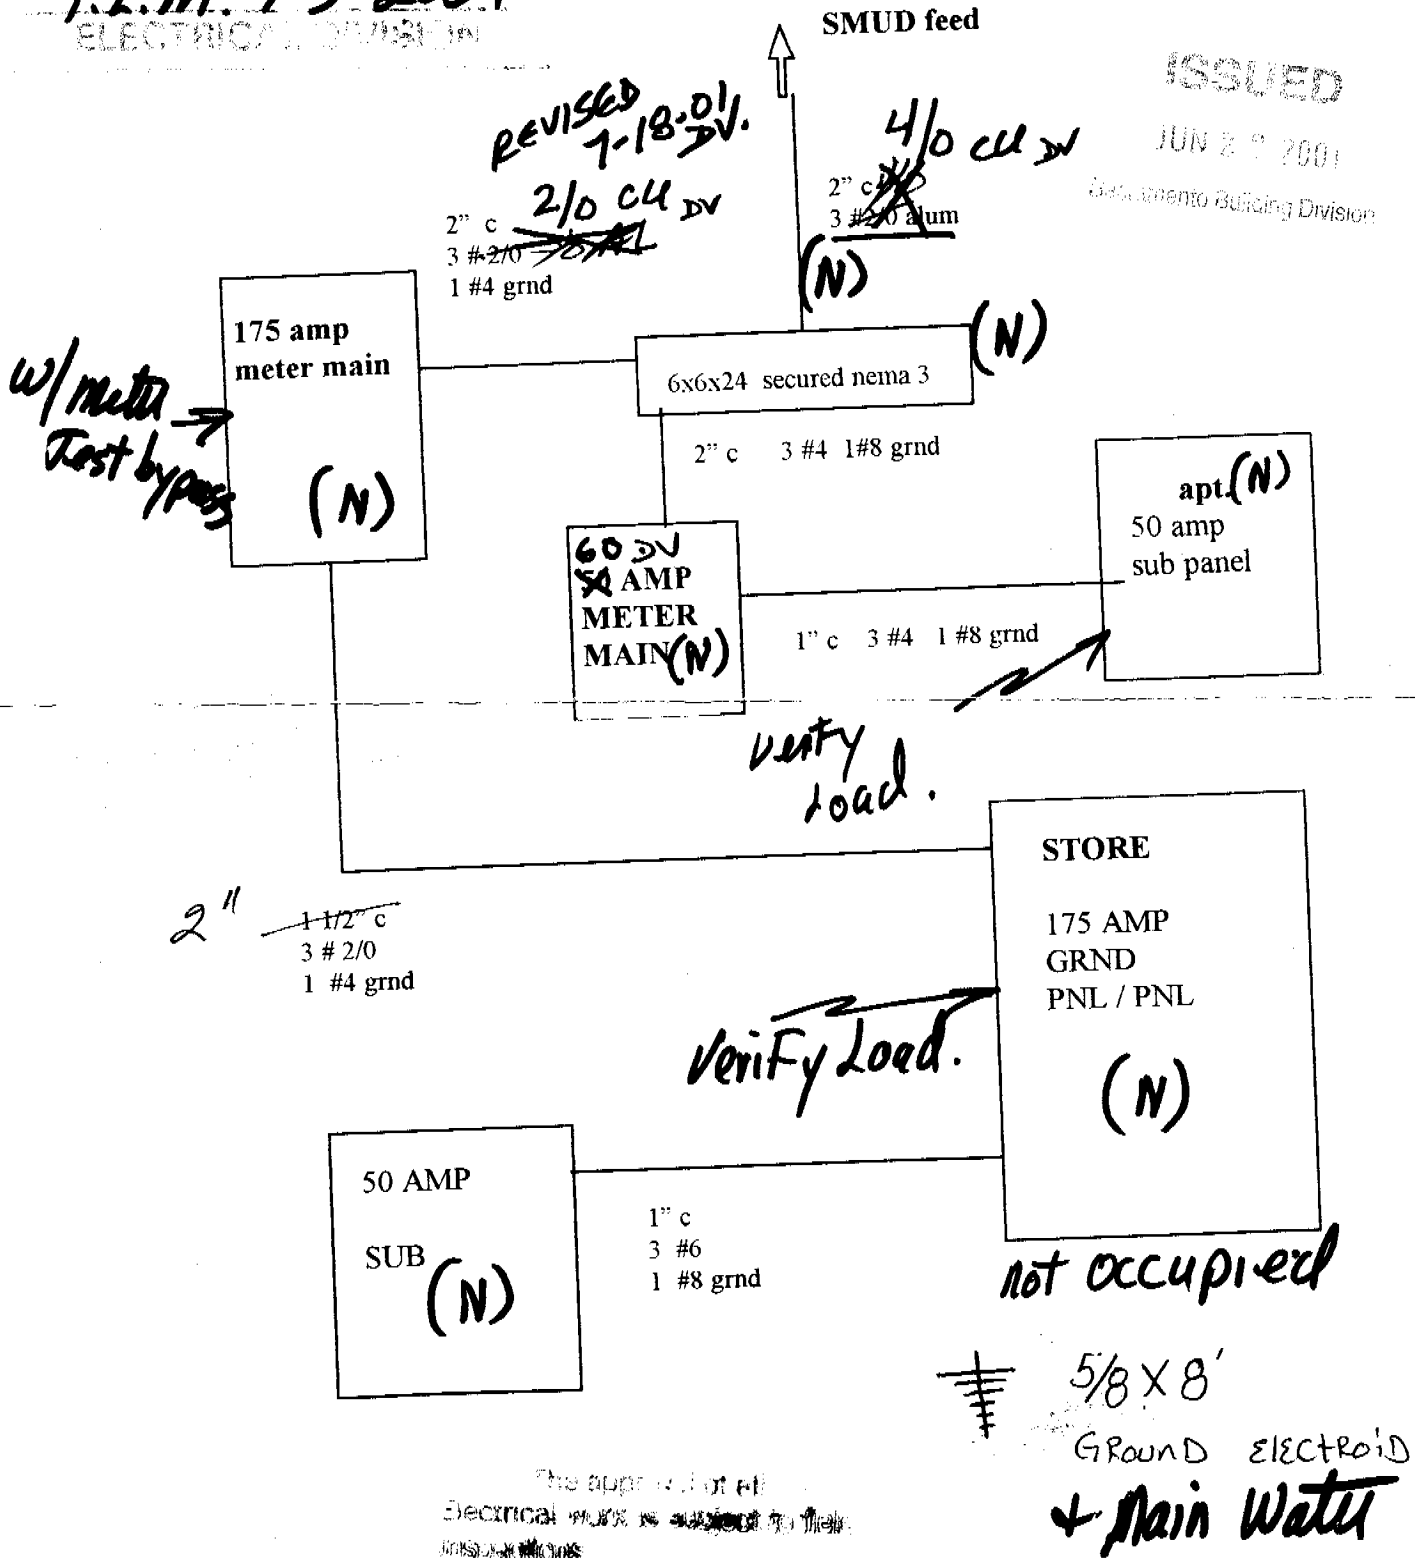 ELECTRICAL DIVISION
SMUD feed
ISSUED
JUN 2001
Sacramento Building Division
REVISED
7-18-01
DV.
4/0 CU DV
2" c
3 #2/0 alum
(N)
2/0 CU DV
2" c
3 #2/0
1 #4 grnd
175 amp
meter main
(N)
w/ meter
Test bypass
6x6x24 secured nema 3
(N)
2" c 3 #4 1#8 grnd
60 DV
50 AMP
METER
MAIN (N)
1" c 3 #4 1 #8 grnd
apt. (N)
50 amp
sub panel
verify
Load.
2"
1 1/2" c
3 # 2/0
1 #4 grnd
STORE
175 AMP
GRND
PNL / PNL
(N)
Verify Load.
not occupied
50 AMP
SUB
(N)
1" c
3 #6
1 #8 grnd
5/8 X 8'
GROUND ELECTROID
+ Main Water
The approval of
Electrical work is subject to field
inspections